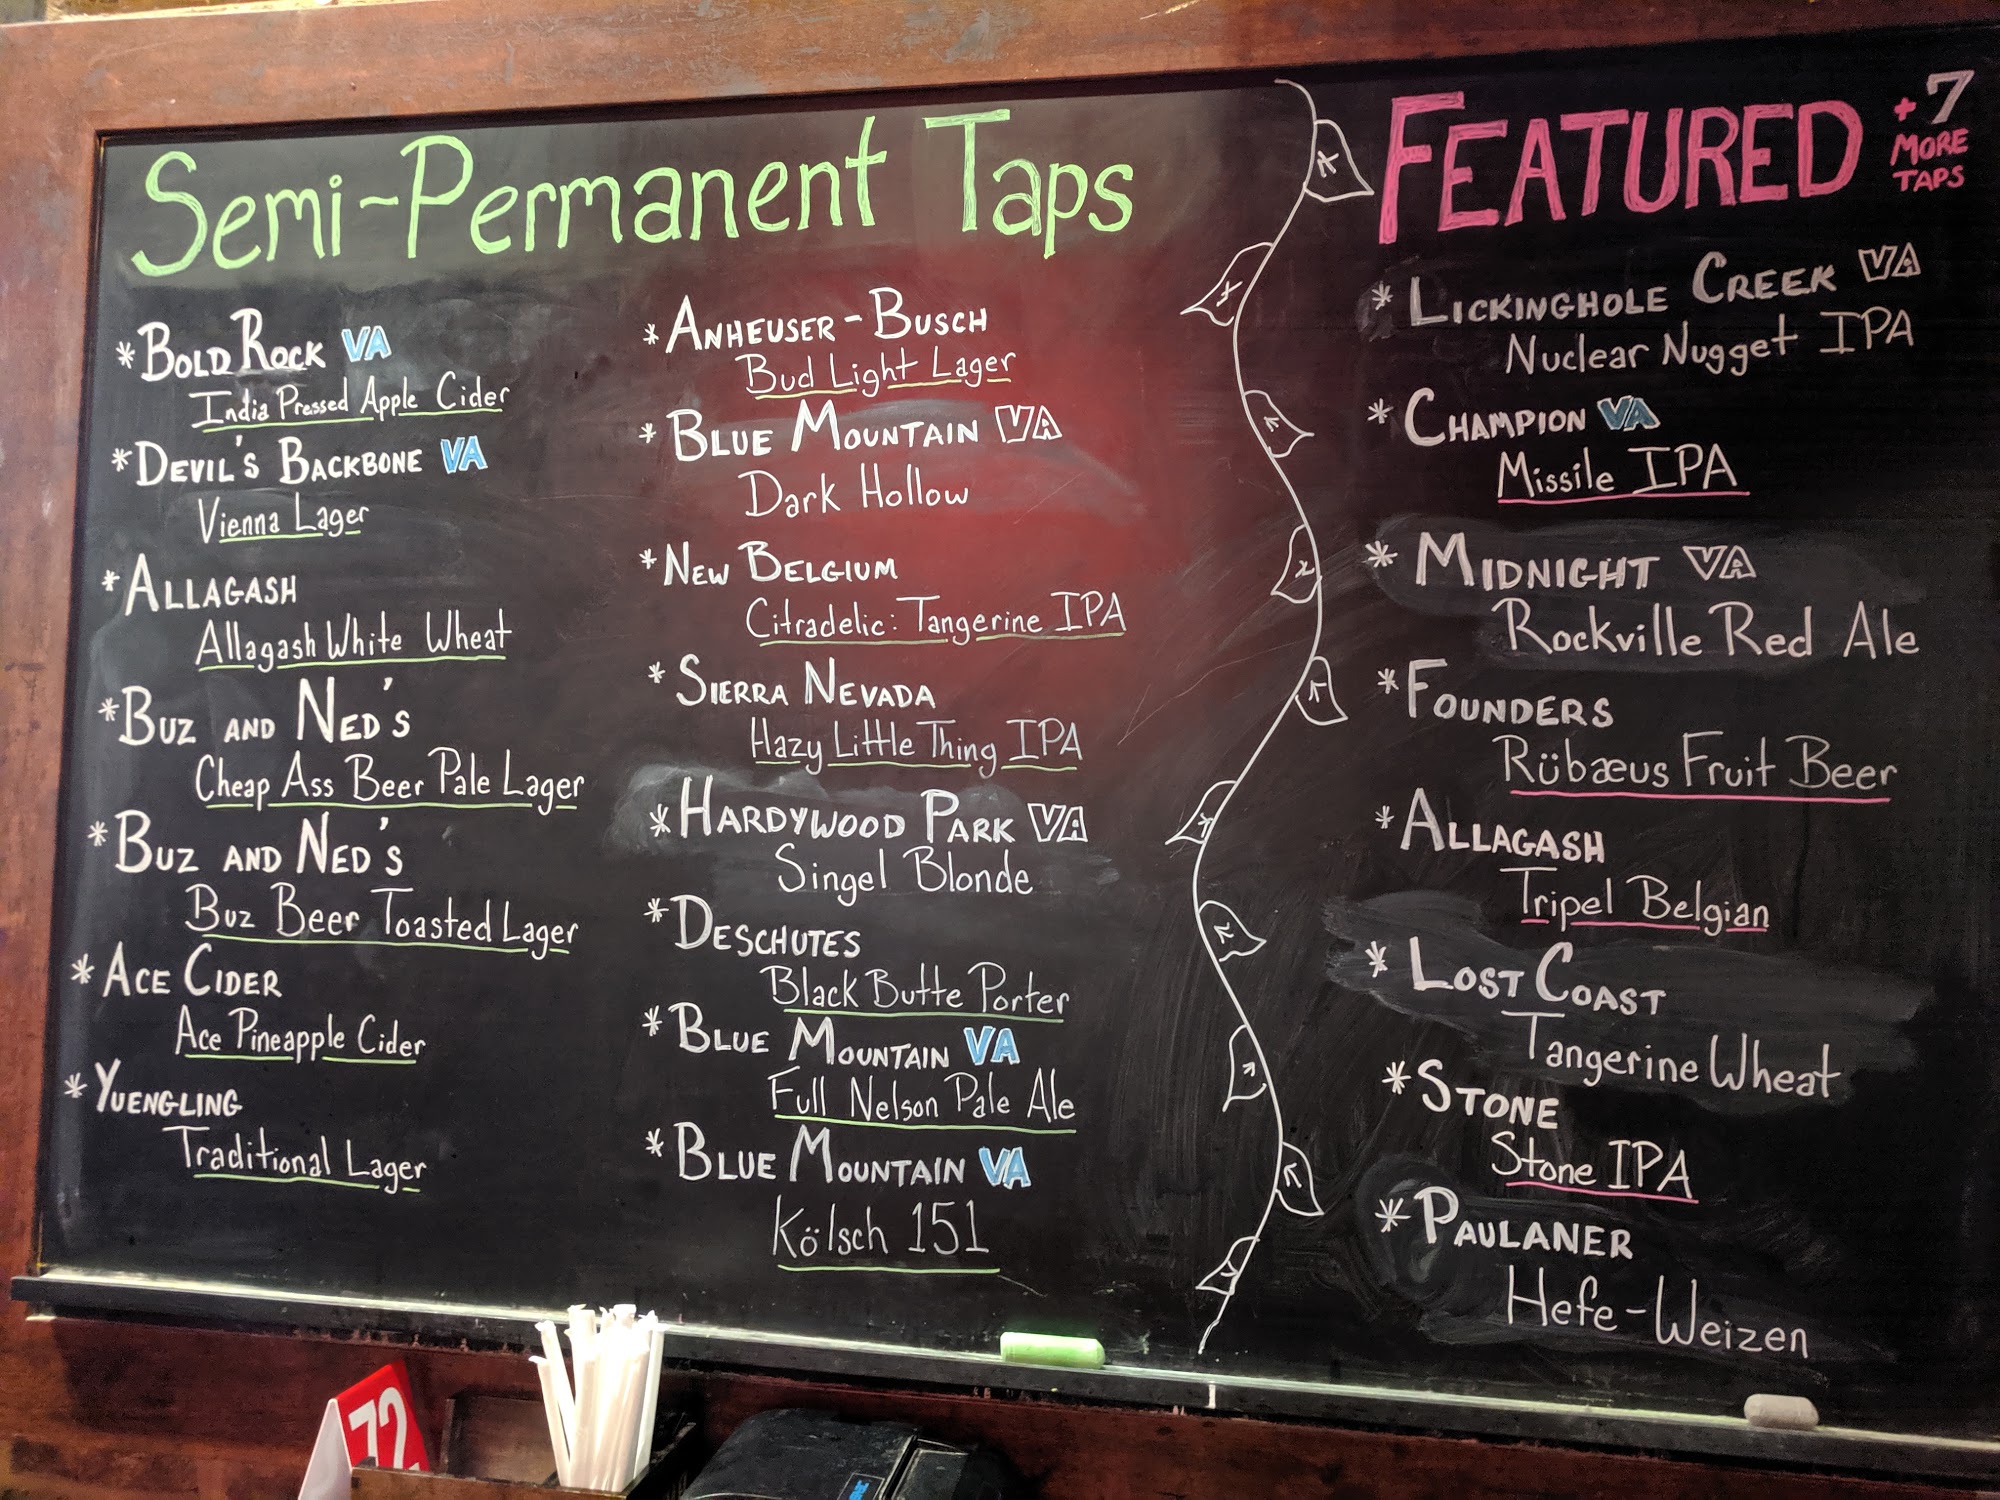 Semi-Permanent Taps
* Bold Rock VA
India Pressed Apple Cider
* Devil's Backbone VA
Vienna Lager
* Allagash
Allagash White Wheat
* Buz and Ned's
Cheap Ass Beer Pale Lager
* Buz and Ned's
Buz Beer Toasted Lager
* Ace Cider
Ace Pineapple Cider
* Yuengling
Traditional Lager
* Anheuser-Busch
Bud Light Lager
* Blue Mountain VA
Dark Hollow
* New Belgium
Citradelic: Tangerine IPA
* Sierra Nevada
Hazy Little Thing IPA
* Hardywood Park VA
Singel Blonde
* Deschutes
Black Butte Porter
* Blue Mountain VA
Full Nelson Pale Ale
* Blue Mountain VA
Kölsch 151
FEATURED
+7
MORE
TAPS
* Lickinghole Creek VA
Nuclear Nugget IPA
* Champion VA
Missile IPA
* Midnight VA
Rockville Red Ale
* Founders
Rübæus Fruit Beer
* Allagash
Tripel Belgian
* Lost Coast
Tangerine Wheat
* Stone
Stone IPA
* Paulaner
Hefe-Weizen
72